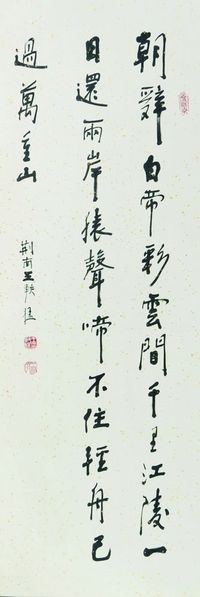 朝辭白帝彩雲間千里江陵一
日還兩岸猿聲啼不住輕舟已
過萬重山
荆南王